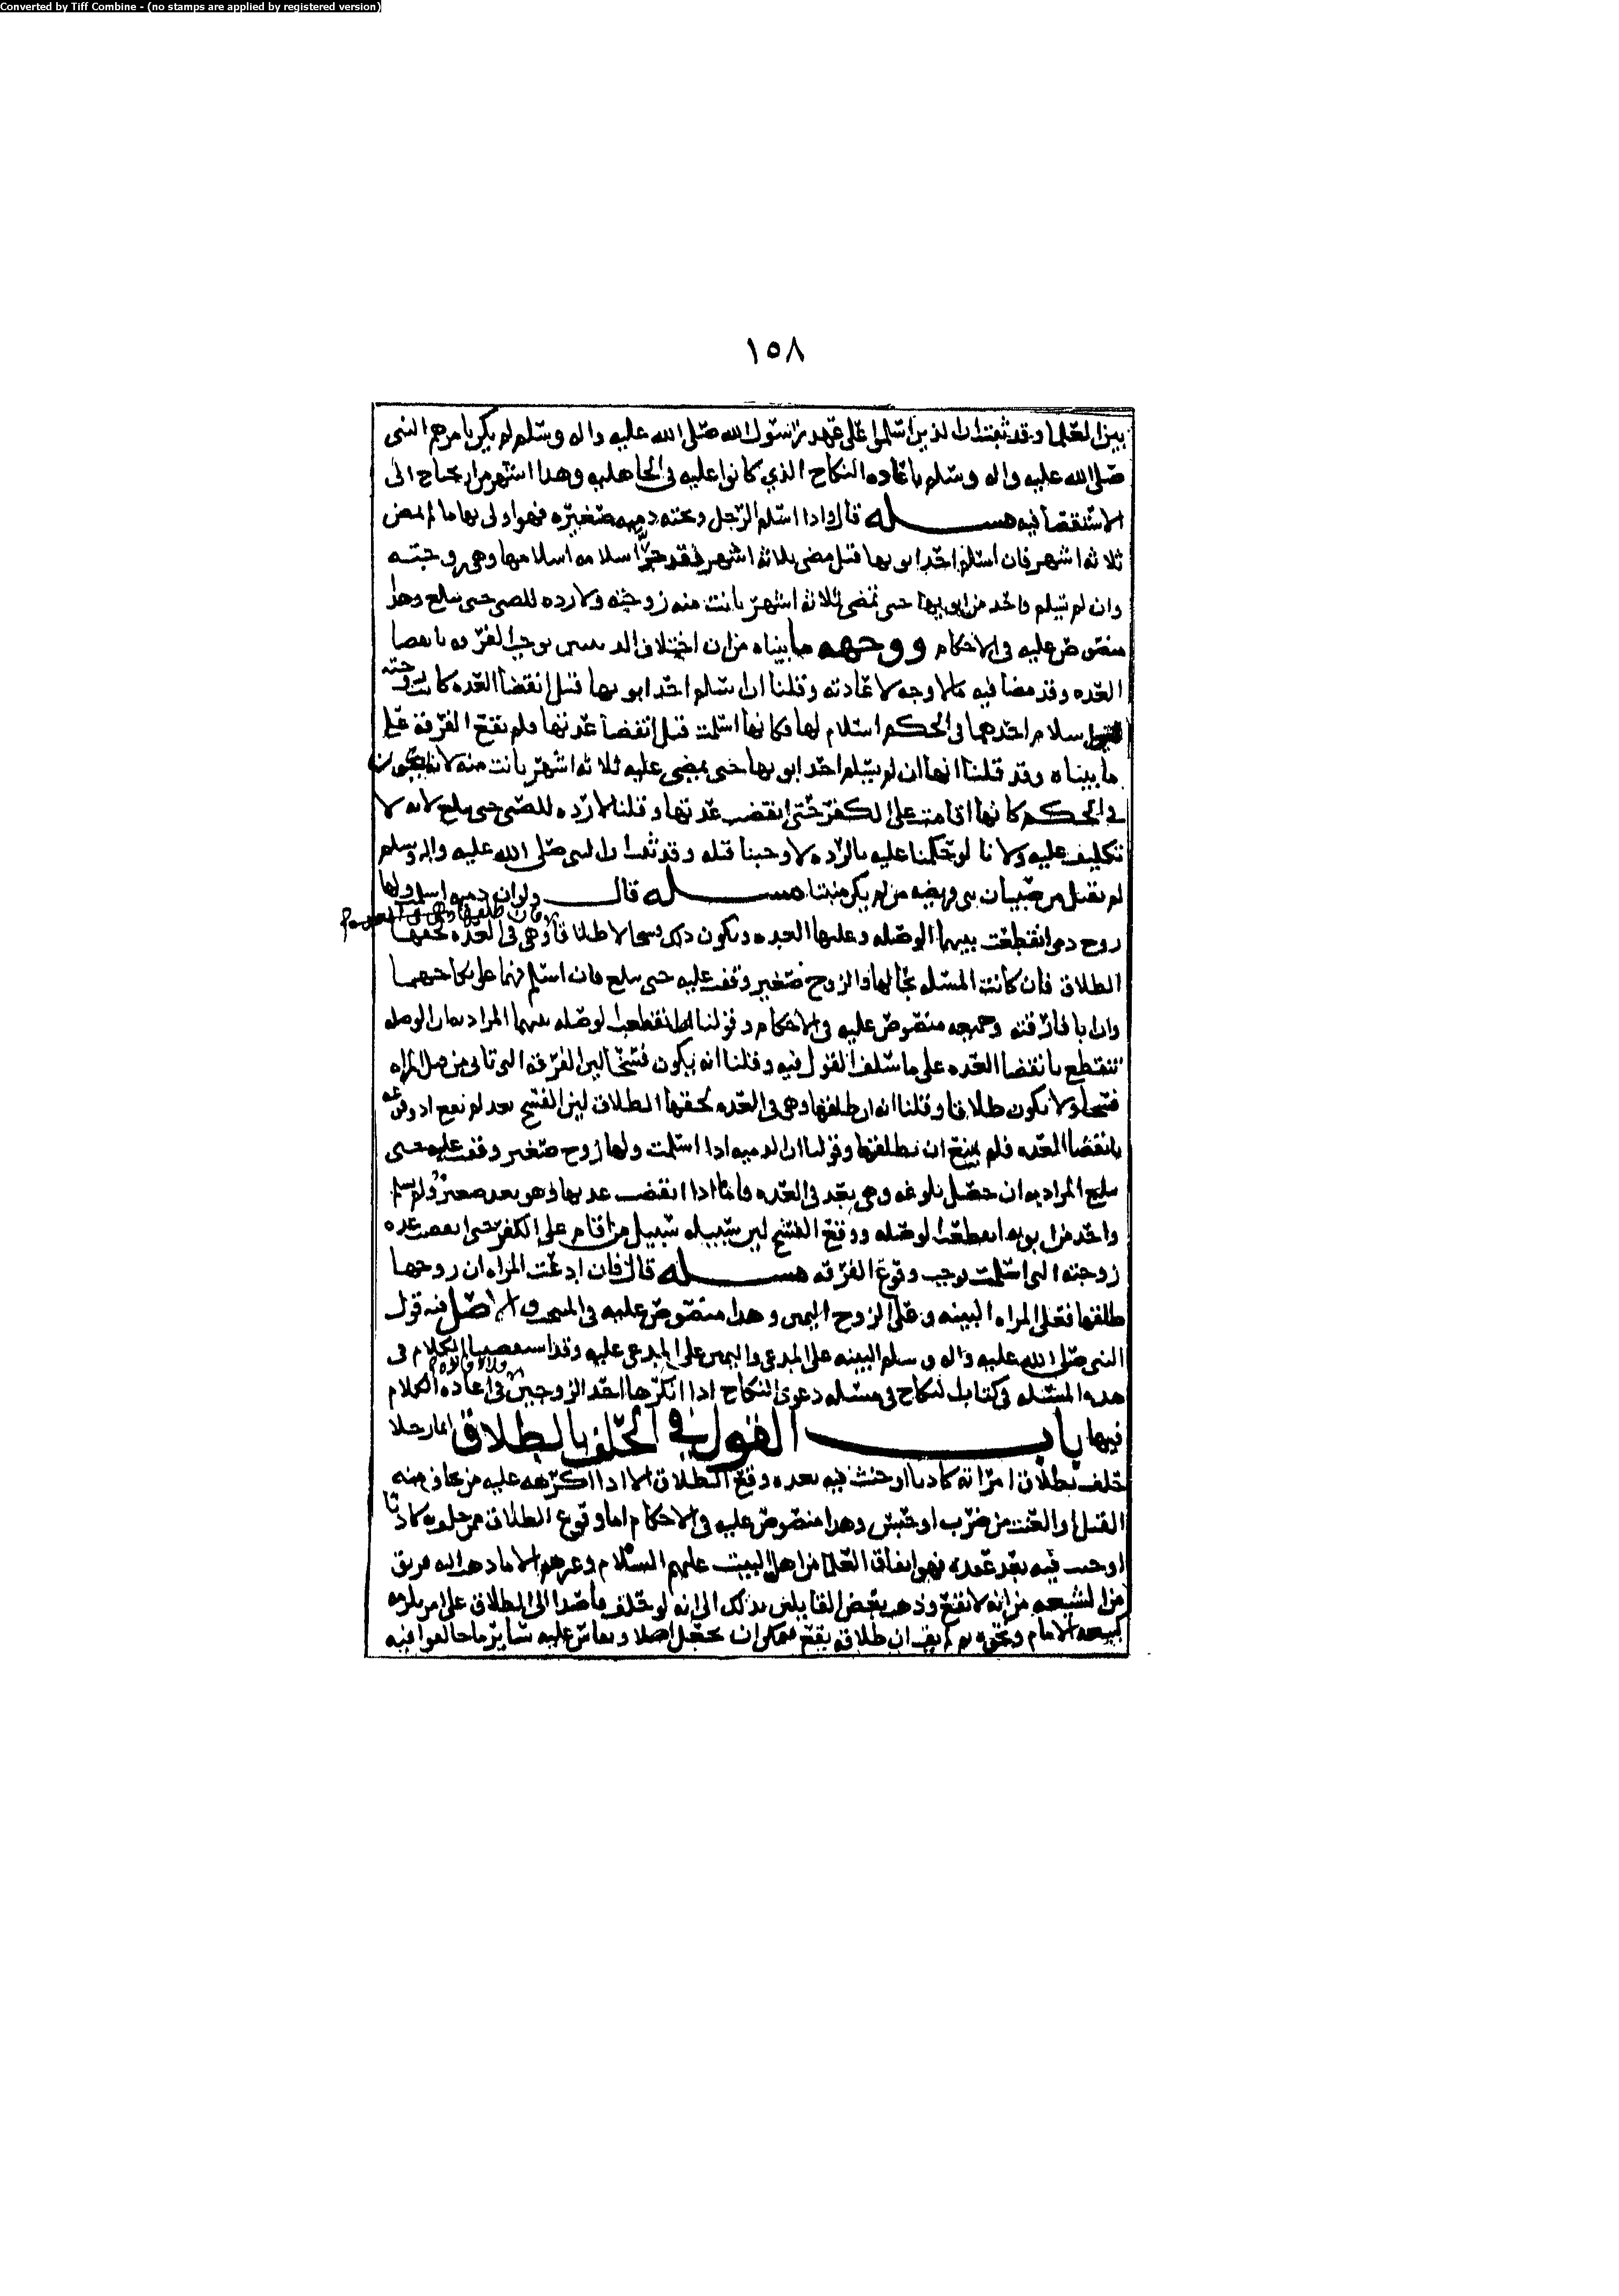 Converted by Tiff Combine - (no stamps are applied by registered version)
١٥٨
بين العلما وقد ثبت ان الذين اسلموا على عهد رسول الله صلى الله عليه واله وسلم لم يكن يامرهم النبى
صلى الله عليه واله وسلم باعاده النكاح الذي كانوا عليه فى الجاهليه وهذا اشهر من ان يحتاج الى
الاستقصا فيه مسله قال واذا اسلم الرجل وتحته ذميه صغيره فهو اولى بها ما لم تمض
ثلاثه اشهر فان اسلم احد ابويها قبل مضى ثلاثه اشهر فقد اسلامه اسلامها وهى زوجته
وان لم يسلم واحد من ابويها حتى تمضى ثلاثه اشهر بانت منه زوجته ولا رده للصبى حتى يبلغ وهذا
منصوص عليه فى الاحكام ووجهه ما بيناه من ان اختلاف الدينين يوجب الفرقه بانقضا
العده وقد مضا فيه ما لا وجه لاعادته وقلنا ان اسلم احد ابويها قبل انقضا العده كانت زوجته
اسلام احدهما فى الحكم اسلام لها فكانها اسلمت قبل انقضا عدتها فلم تقع الفرقة على
ما بيناه وقد قلنا انها ان لم يسلم احد ابويها حتى يمضى عليه ثلاثه اشهر بانت منه لانه يكون
فى الحكم كانها اقامت على الكفر حتى انقضت عدتها وقلنا لا رده للصبى حتى يبلغ لانه لا
تكليف عليه ولانا لو حكمنا عليه بالرده لاوجبنا قتله وقد ثبت ان النبى صلى الله عليه واله وسلم
لم يقتل من صبيان بنى قريضه من لم يكن منبتا مسله قال ولو ان ذميه اسلمت ولها
زوج ذمى انقطعت بينهما الوصله وعليها العده ويكون ذلك فسخا لا طلاقا وهى فى العده لحقها
فان طلقها وهى فى العده
الطلاق فان كانت المسله بحالها والزوج صغير وقفت عليه حتى يبلغ فان اسلم فهما على نكاحهما
وان ابا فارقته وجميعه منصوص عليه فى الاحكام وقولنا انقطعت الوصله بينهما المراد به ان الوصله
تنقطع بانقضا العده على ما سلف القول فيه وقلنا انه يكون فسخا لان الفرقه التى تاتى من قبل المراه
فسخا ولا يكون طلاقا وقلنا انه ان طلقها وهى فى العده لحقها الطلاق لان الفسخ بعد لم يقع اذ وقوعه
بانقضا العده فلم يمنع ان يطلقها وقولنا ان الذميه اذا اسلمت ولها زوج صغير وقفت عليه حتى
يبلغ المراد به ان حصل بلوغه وهى بعد فى العده فاما اذا انقضت عدتها وهو بعد صغير ولم يسلم
واحد من ابويه انقطعت الوصله ووقع الفسخ لان سبيله سبيل من اقام على الكفر حتى انقضت عده
زوجته التى اسلمت يوجب وقوع الفرقه مسله قال فان ادعت المراه ان زوجها
طلقها فعلى المراه البينه وعلى الزوج اليمين وهذا منصوص عليه فى المنتخب والاصل فيه قول
النبى صلى الله عليه واله وسلم البينه على المدعى واليمين على المدعى عليه وقد استقصينا الكلام فى
هذه المسئله فى كتاب النكاح فى مسئله دعوى النكاح اذا انكرها احد الزوجين فى اعاده الكلام
فيها باب القول فى الحلف بالطلاق ايما رجلا
حلف بطلاق امراته كاذبا او حنث فيه بعده وقع الطلاق الا اذا اكرهه عليه من يخاف منه
القتل او العنت من ضرب او حبس وهذا منصوص عليه فى الاحكام اما وقوع الطلاق ممن حلف به كاذبا
او حنث فيه بعد عقده فهو اتفاق العلما من اهل البيت عليهم السلام وغيرهم الا ما ذهب اليه فريق
من الشيعه من انه لا يقع وذهب بعض القايلين بذلك الى انه لو حلف قاصدا الى الطلاق على امر يلزمه
كبيعه الامام ونحوه ان طلاقه يقع فيمكن ان يجعل اصلا ويقاس عليه ساير ما خالفوا فيه